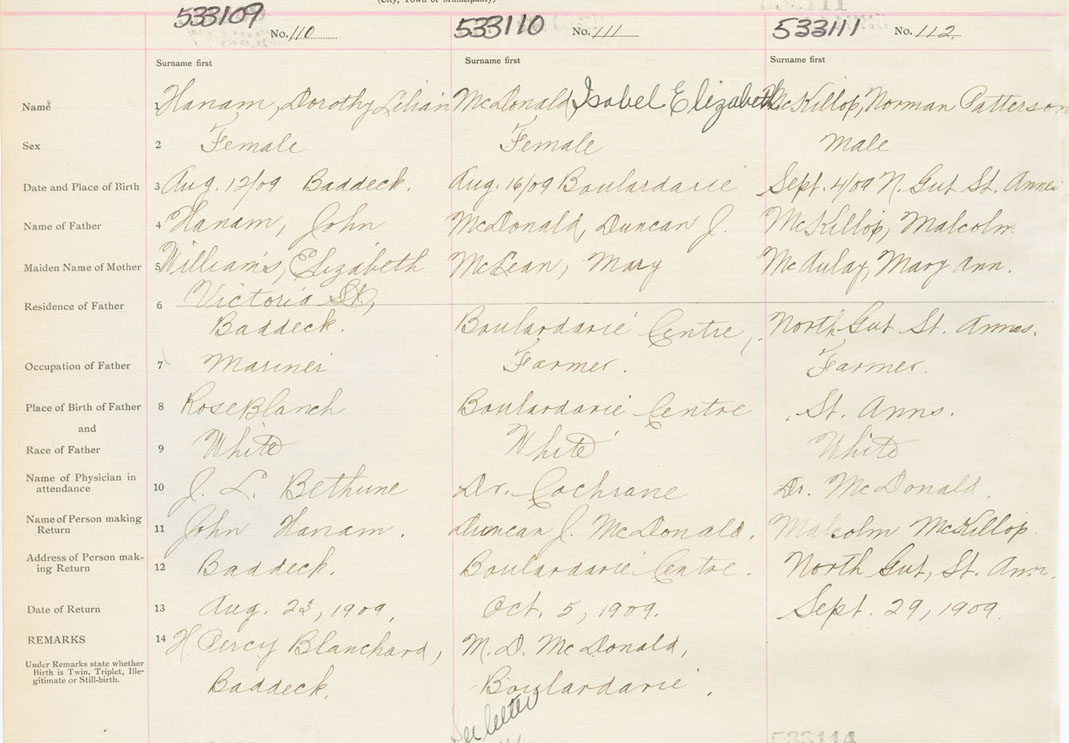 (City, Town or Municipality)
533109 No. 110 533110 No. 111 533111 No. 112
Surname first Surname first Surname first
Name 1 Hanam, Dorothy Lilian McDonald, Isabel Elizabeth McKillop, Norman Patterson
Sex 2 Female Female Male
Date and Place of Birth 3 Aug. 12/09 Baddeck. Aug. 16/09 Boulardarie Sept. 4/09 N. Gut St. Annes
Name of Father 4 Hanam, John McDonald, Duncan J. McKillop, Malcolm.
Maiden Name of Mother 5 Williams, Elizabeth McLean, Mary McAulay, Mary Ann.
Residence of Father 6 Victoria St,
Baddeck. Boulardarie Centre, North Gut St. Annas.
Occupation of Father 7 Mariner Farmer. Farmer.
Place of Birth of Father 8 RoseBlanch Boulardarie Centre St. Anns.
and
Race of Father 9 White White White
Name of Physician in
attendance 10 J. L. Bethune Dr. Cochrane Dr. McDonald.
Name of Person making
Return 11 John Hanam. Duncan J. McDonald. Malcolm McKillop
Address of Person mak-
ing Return 12 Baddeck. Boulardarie Centre. North Gut, St. Ann.
Date of Return 13 Aug. 23, 1909, Oct. 5, 1909. Sept. 29, 1909.
REMARKS 14 H Percy Blanchard, M. D. McDonald,
Under Remarks state whether
Birth is Twin, Triplet, Ille-
gitimate or Still-birth. Baddeck. Boulardarie.
See letter
533114